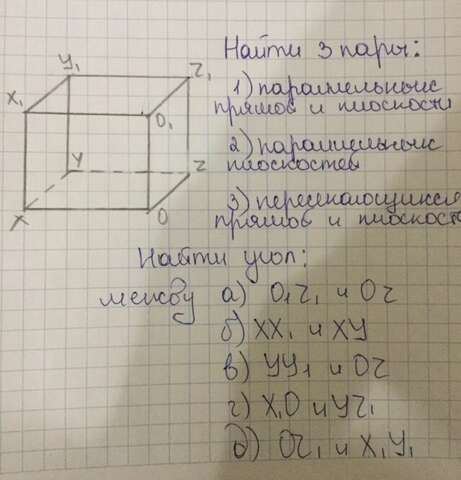 Найти 3 пары:
1) параллельных
прямой и плоскости
2) параллельных
плоскостей
3) пересекающихся
прямой и плоскост
Найти угол:
между а) O₁Z₁ и OZ
б) XX₁ и XY
в) YY₁ и OZ
г) X₁O и YZ₁
д) OZ₁ и X₁Y₁
Y₁
Z₁
X₁
O₁
Y
Z
X
O